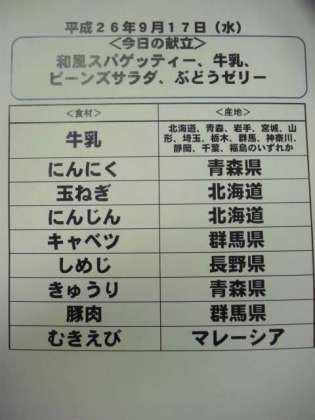 平成26年9月17日（水）
＜今日の献立＞
和風スパゲッティー、牛乳、
ビーンズサラダ、ぶどうゼリー
＜食材＞ ＜産地＞
牛乳 北海道、青森、岩手、宮城、山
形、埼玉、栃木、群馬、神奈川、
静岡、千葉、福島のいずれか
にんにく 青森県
玉ねぎ 北海道
にんじん 北海道
キャベツ 群馬県
しめじ 長野県
きゅうり 青森県
豚肉 群馬県
むきえび マレーシア